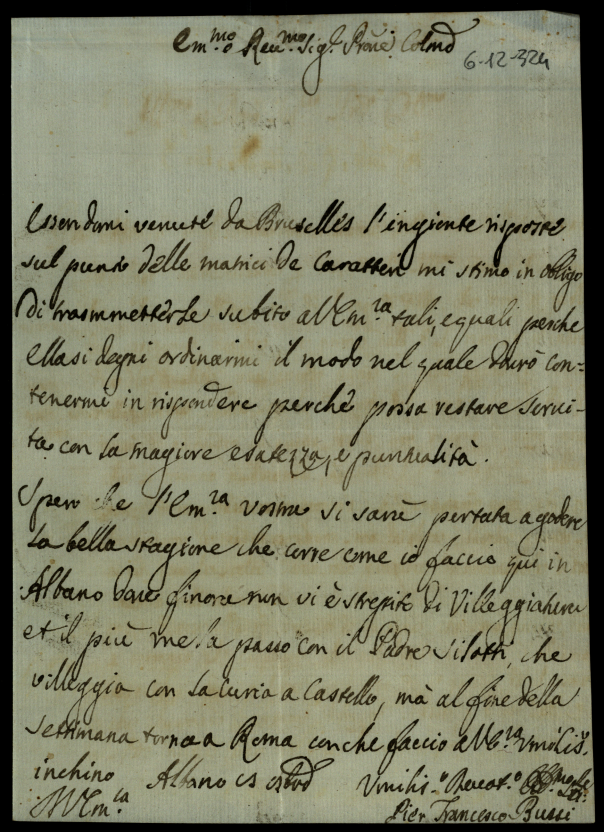 Em.mo Reu.mo Sig.r Prõne Colmõ
6-12-324
Essendomi venute da Bruselles l'ingionte risposte
sul punto delle matrici de Caratteri mi stimo in obligo
di trasmetterle subito all'Em.za tali, e quali perche
ella si degni ordinarmi il modo nel quale dourò con=
tenermi in rispondere perche possa restare serui-
ta con la magiore esatezza, e puntualità.
Spero che l'Em.za Vostra si sarà portata a godere
la bella stagione che corre come io faccio qui in
Albano doue finora non vi è strepito di Villeggiatura
et il più me la passo con il Padre che
villeggia con la Curia a Castello, mà al fine della
settimana torna a Roma con che faccio all'E.za V. umiliss.
inchino Albano
All'Em.za
Umilis.o Deuot.o
Pier Francesco Bussi